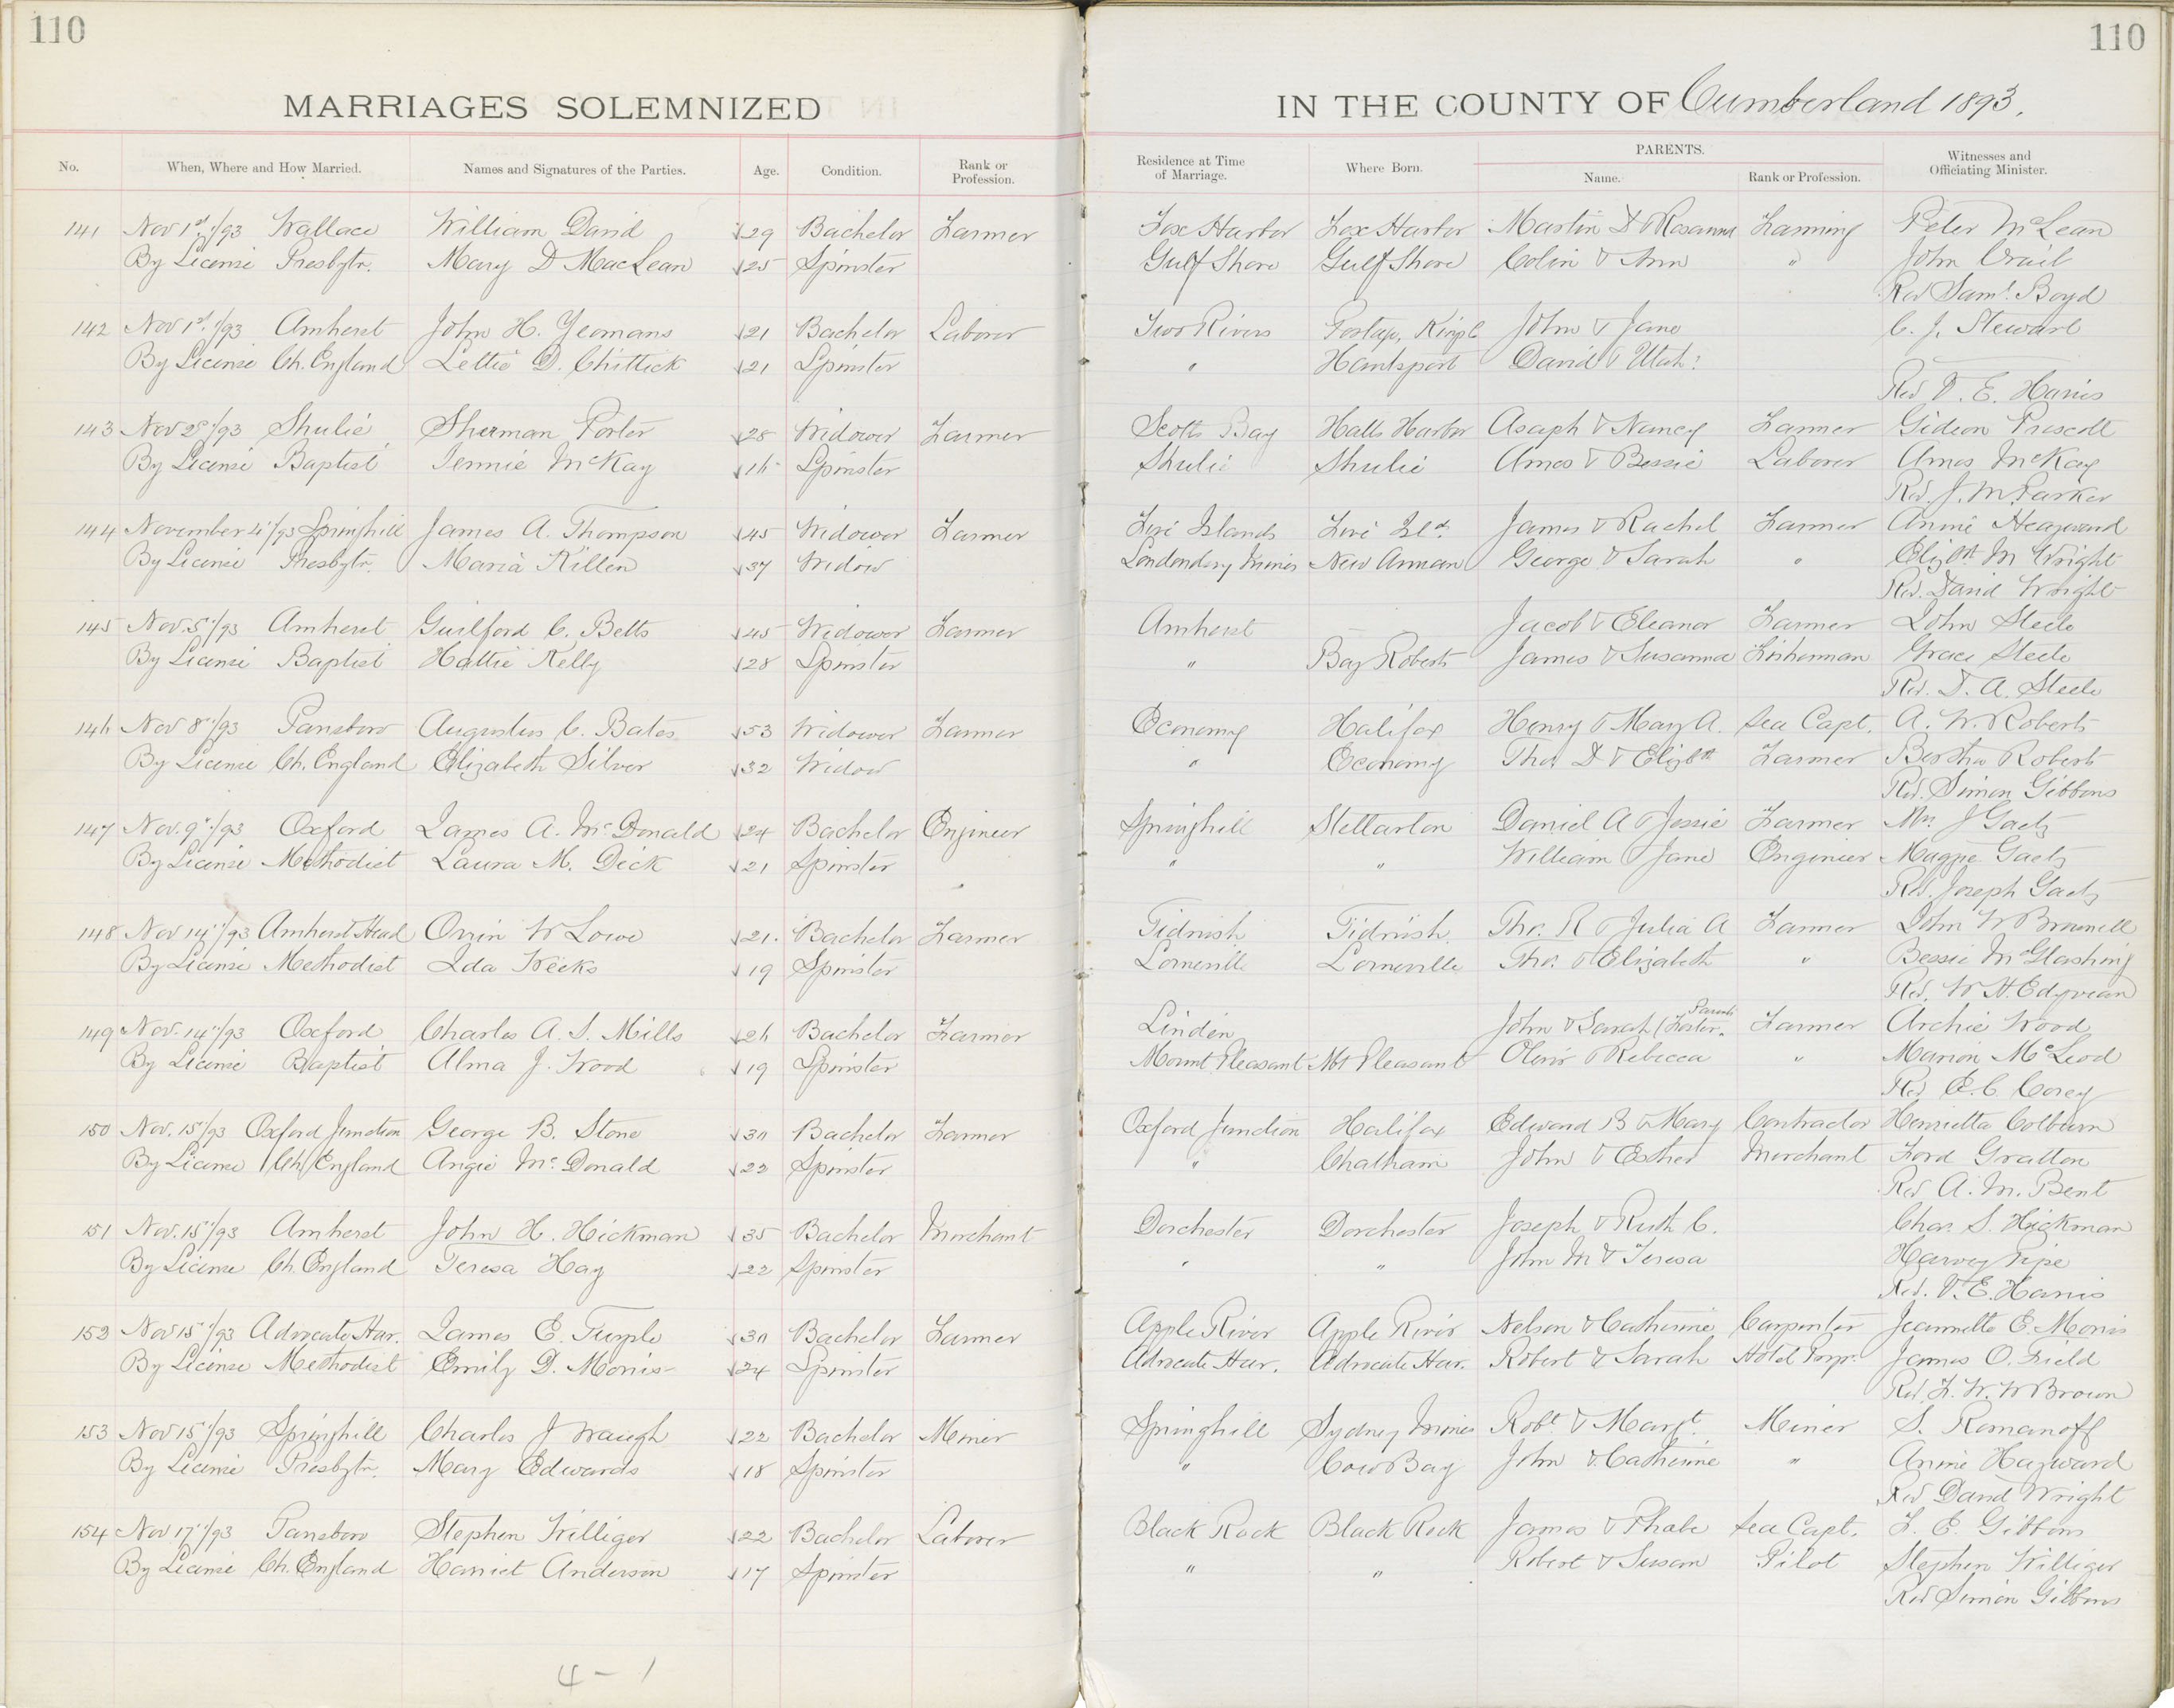 110
110
MARRIAGES SOLEMNIZED
IN THE COUNTY OF Cumberland 1893.
No. When, Where and How Married. Names and Signatures of the Parties. Age. Condition. Rank or Profession. Residence at Time of Marriage. Where Born. PARENTS. Name. Rank or Profession. Witnesses and Officiating Minister.
141 Nov 1st /93 Wallace William David 29 Bachelor Farmer Fox Harbor Fox Harbor Martin D & Rosanna Farming Peter McLean
By License Presbytr. Mary D MacLean 25 Spinster Gulf Shore Gulf Shore Colin & Ann " John Crail
Rev Saml. Boyd
142 Nov 1st. /93 Amherst John H. Yeomans 21 Bachelor Laborer Two Rivers John & Jane C. J. Stewart
By License Ch. England Lettie D. Chittick 21 Spinster " Hantsport David &
Rev V. E. Harris
143 Nov 2d /93 Shulie Sherman Porter 28 Widower Farmer Scotts Bay Halls Harbor Asaph & Nancy Farmer Gideon Prescott
By License Baptist Jennie McKay 16 Spinster Shulie Shulie Amos & Bessie Laborer Amos McKay
Rev. J. M. Parker
144 November 4"/93 Springhill James A. Thompson 45 Widower Farmer Five Islands Five Isl'd. James & Rachel Farmer Annie Heayward
By License Presbytr. Maria Killen 37 Widow Londondery Mines New Annan George & Sarah " Elizbth M Wright
Rev. David Wright
145 Nov. 5"/93 Amherst Guilford C. Betts 45 Widower Farmer Amherst Jacob & Eleanor Farmer John Steele
By License Baptist Hattie Kelly 28 Spinster " Bay Roberts James & Susanna Fisherman Grace Steele
Rev. D. A. Steele
146 Nov 8"/93 Parrsboro Augustus C. Bates 53 Widower Farmer Economy Halifax Henry & Mary A. Sea Capt. A. W. Roberts
By License Ch. England Elizabeth Silver 32 Widow " Economy Thos D & Elizbth Farmer Bertha Roberts
Rev. Simon Gibbons
147 Nov. 9"/93 Oxford James A. McDonald 24 Bachelor Engineer Springhill Stellarton Daniel A & Jessie Farmer Mrs. J Gaetz
By License Methodist Laura M. Dick 21 Spinster " " William & Jane Engineer Maggie Gaetz
Rev. Joseph Gaetz
148 Nov 14"/93 Amherst Head Orrin W Lowe 21. Bachelor Farmer Tidnish Tidnish. Thos. R & Julia A Farmer John W Brownell
By License Methodist Ida Weeks 19 Spinster Lorneville Lorneville Thos. & Elizabeth " Bessie McGlashing
Rev. W H. Edyvean
149 Nov. 14"/93 Oxford Charles A. S. Mills 26 Bachelor Farmer Linden John & Sarah (Foster. Parents Farmer Archie Wood
By License Baptist Alma J. Wood 19 Spinster Mount Pleasant Mt Pleasant Oliver & Rebecca " Marion McLeod
Rev E. C. Corey
150 Nov. 15"/93 Oxford Junction George B. Stone 30 Bachelor Farmer Oxford Junction Halifax Edward B & Mary Contractor Henrietta Colburn
By License Ch. England Angie McDonald 22 Spinster " Chatham John & Esther Merchant Ford Gratton
Rev A. M. Bent
151 Nov. 15"/93 Amherst John H. Hickman 35 Bachelor Merchant Dorchester Dorchester Joseph & Ruth C. Chas. S. Hickman
By License Ch. England Teresa Hay 22 Spinster " " John M & Teresa Harvey Pipe
Rev. V. E. Harris
152 Nov 15"/93 Advocate Har. James E. Turple 30 Bachelor Farmer Apple River Apple River Nelson & Catherine Carpenter Jeannette E. Morris
By License Methodist Emily D. Morris 24 Spinster Advocate Har. Advocate Har. Robert & Sarah Hotel Propr. James O. Field
Rev. F. W. W Brown
153 Nov 15"/93 Springhill Charles J Waugh 22 Bachelor Miner Springhill Sydney Mines Robt & Margt. Miner S. Romanoff
By License Presbytr. Mary Edwards 18 Spinster " Cow Bay John & Catherine " Annie Hayward
Rev David Wright
154 Nov 17"/93 Parrsboro Stephen Williger 22 Bachelor Laborer Black Rock Black Rock James & Phabe Sea Capt. F. E. Gibbons
By License Ch. England Harriet Anderson 17 Spinster " " Robert & Susan Pilot Stephen Williger
Rev Simon Gibbons
4 - 1